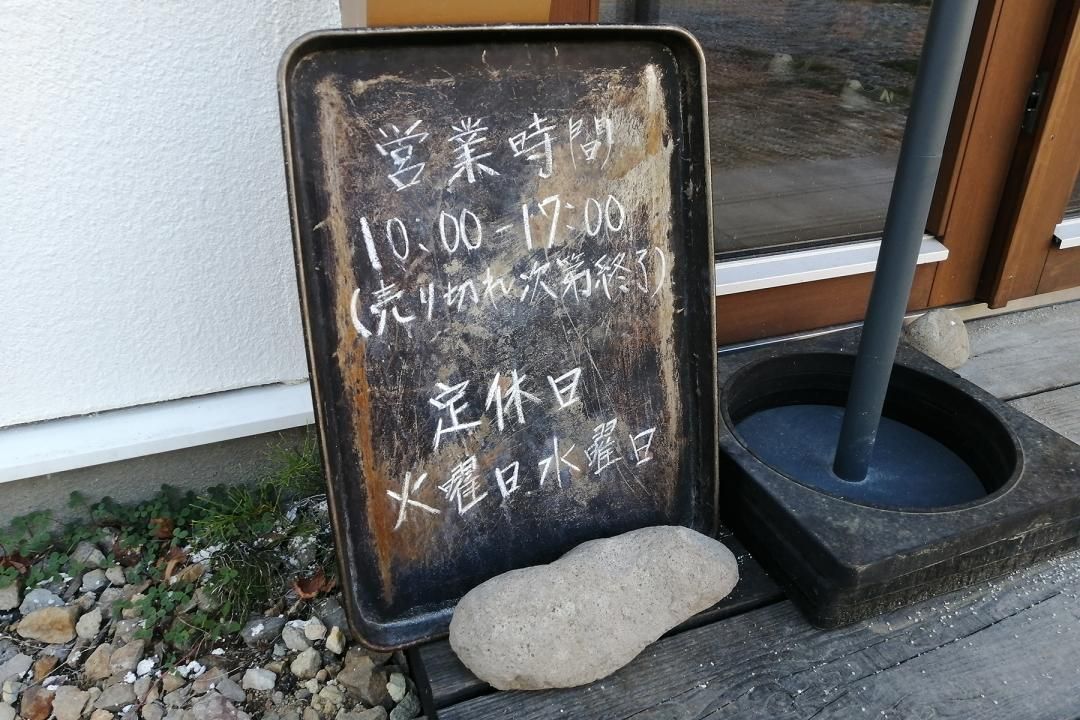 営業時間
10:00-17:00
(売り切れ次第終了)
定休日
火曜日水曜日